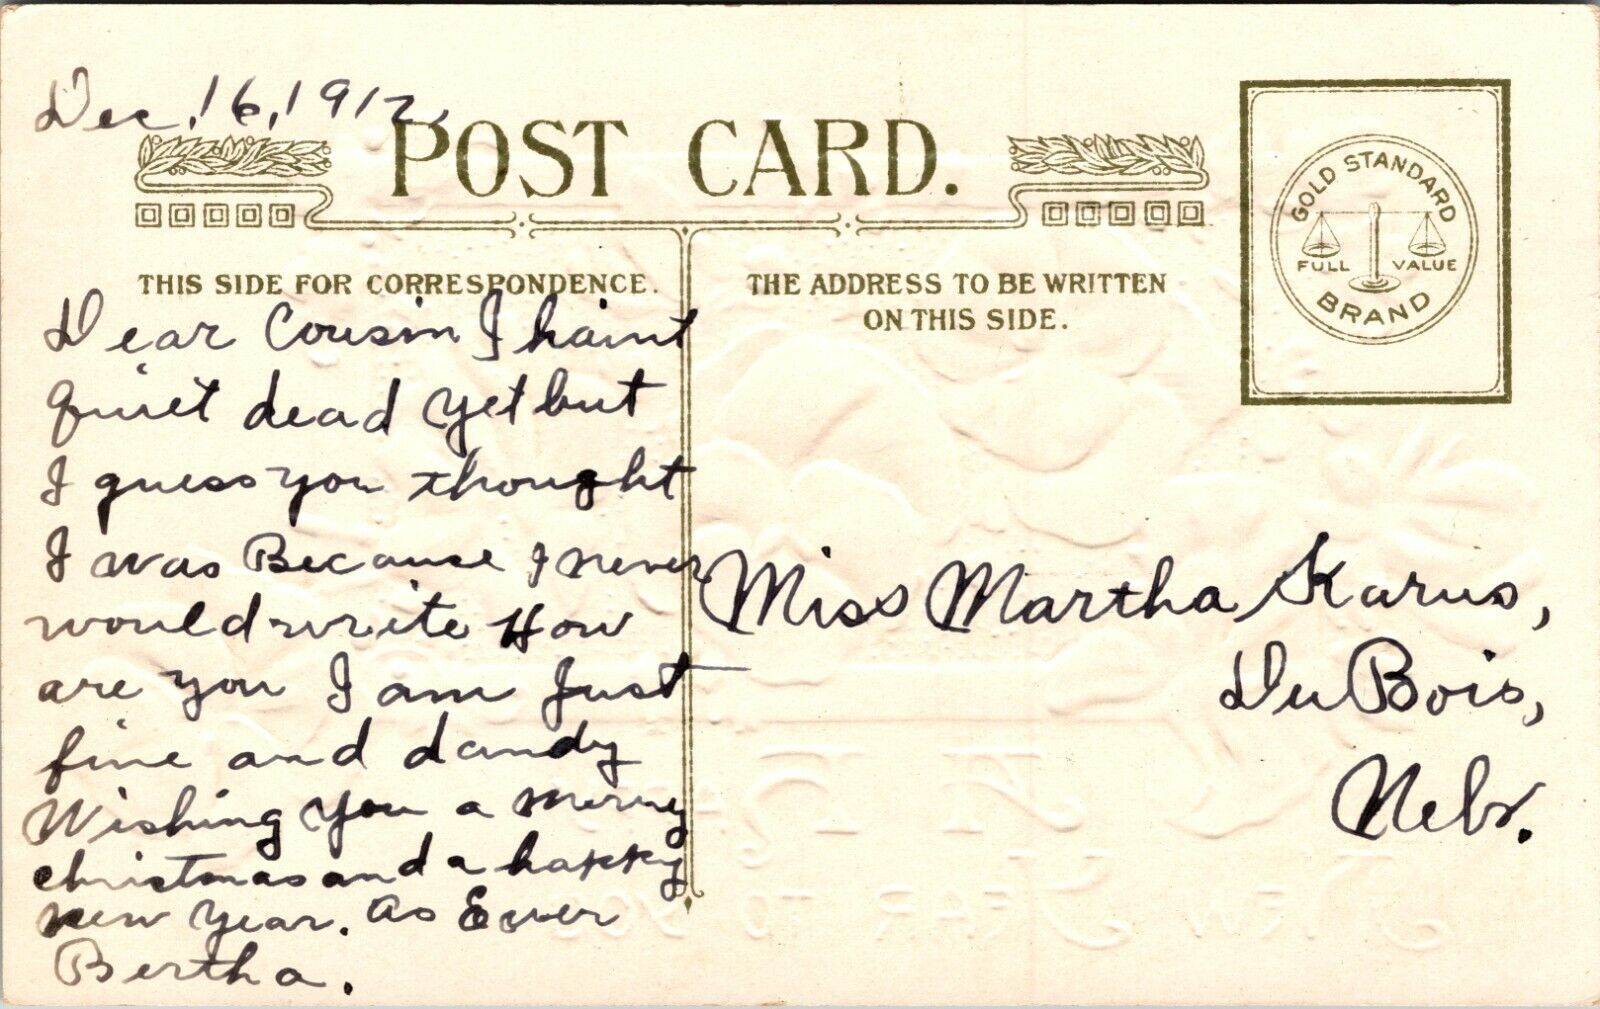 Dec. 16, 1912.
POST CARD.
THIS SIDE FOR CORRESPONDENCE.
Dear Cousin I haint
quiet dead yet but
I guess you thought
I was Because I never
would write How
are you I am Just
fine and dandy
Wishing you a merry
christmas and a happy
new year. As Ever
Bertha.
THE ADDRESS TO BE WRITTEN
ON THIS SIDE.
GOLD STANDARD
FULL VALUE
BRAND
Miss Martha Karus,
DuBois,
Nebr.